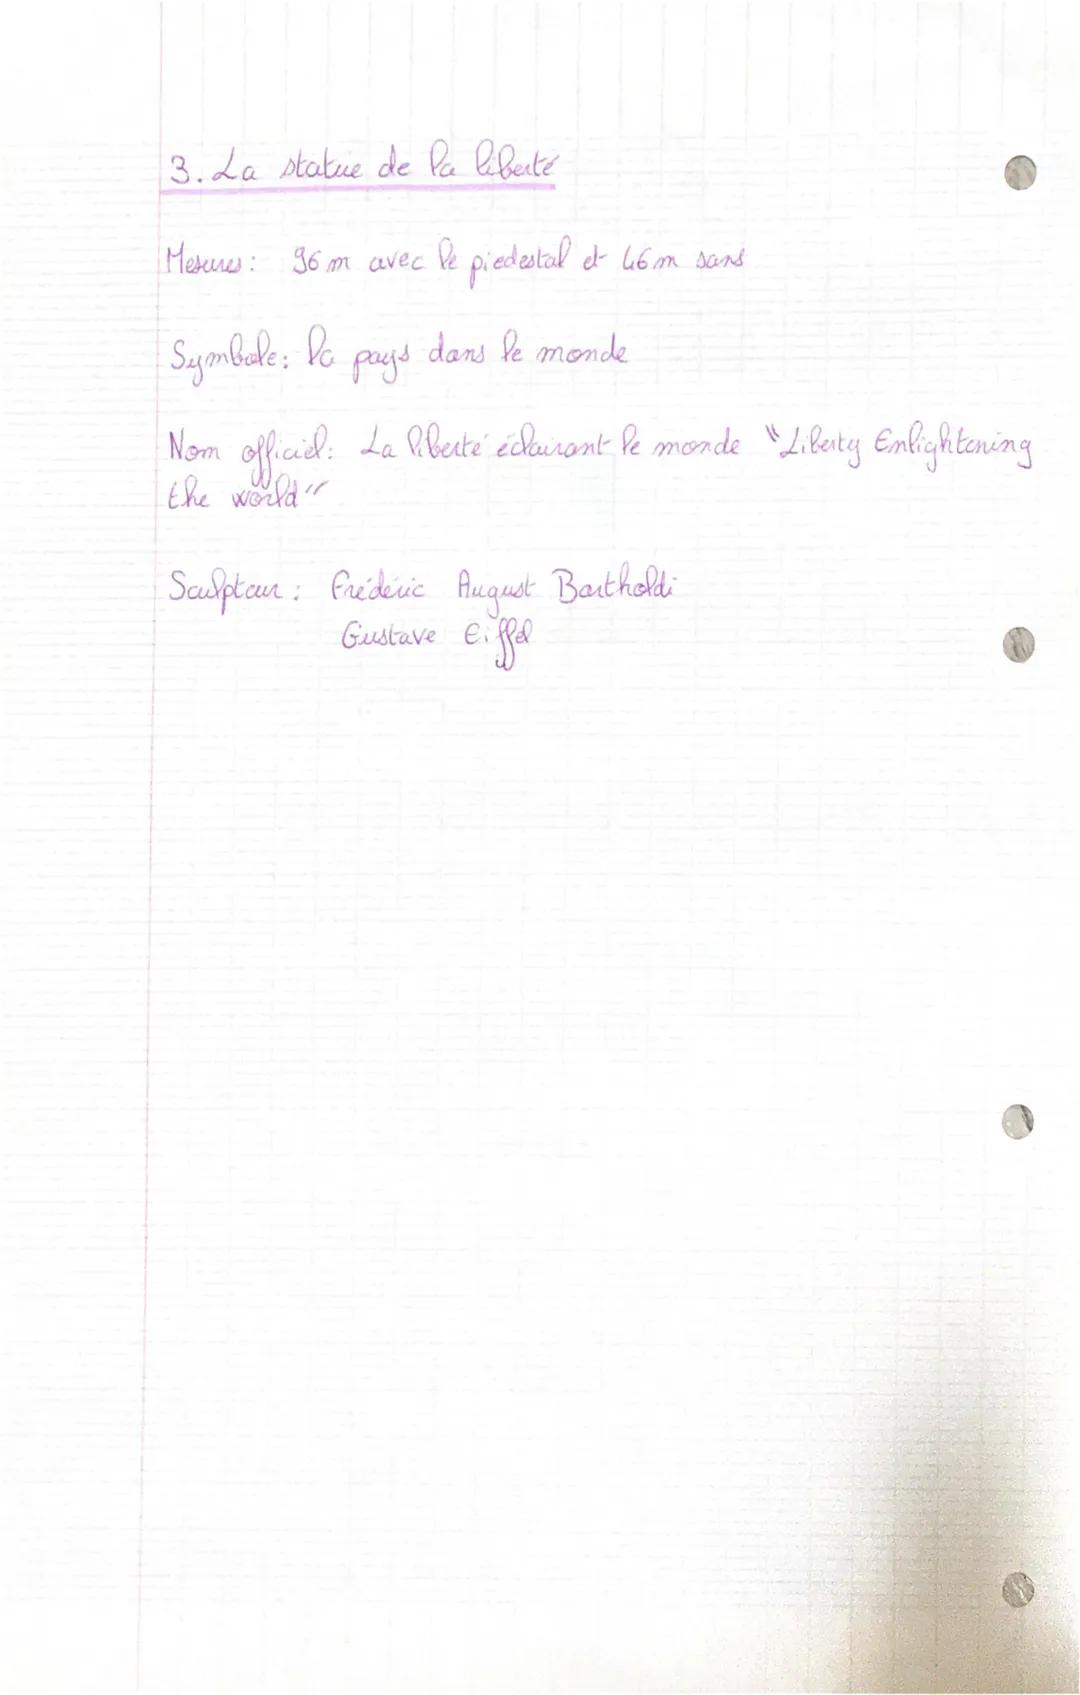 3. La statue de la liberté
Mesures : 96 m avec le piedestal et 46 m sans
Symbole : la pays dans le monde
Nom officiel : La liberté éclairant le monde "Liberty Enlightening
the world"
Sculpteur : Frédéric August Bartholdi
Gustave Eiffel